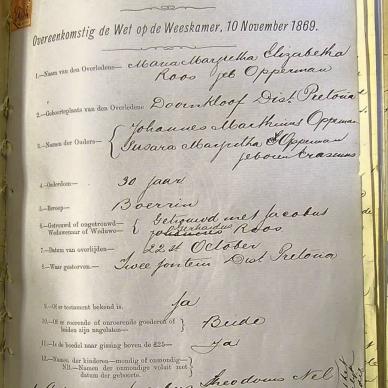 Overeenkomstig de Wet op de Weeskamer, 10 November 1869.
1.—Naam van den Overledene— Maria Margretha Elizabetha
Roos geb Opperman
2.—Geboorteplaats van den Overledene— Doornkloof Dist. Pretoria
3.—Namen der Ouders— Johannes Marthinus Opperman
Susara Margretha S Opperman
geboren Erasmus
4.—Ouderdom— 30 jaar
5.—Beroep— Boerin
6.—Getrouwd of ongetrouwd— Getrouwd met Jacobus
Weduwenaar of Weduwe— Johannes Roos
7.—Datum van overlijden— 22st October
8.—Waar gestorven— Twee fontein Dist Pretoria
9.—Of er testament bekend is. Ja
10.—Of er roerende of onroerende goederen of
beiden zijn nagelaten— Beide
11.—Is de boedel naar gissing boven de £25— Ja
12.—Namen der kinderen—mondig of onmondig—
NB.—Namen der onmondige voluit met
datum der geboorte.
Theodorus Nel